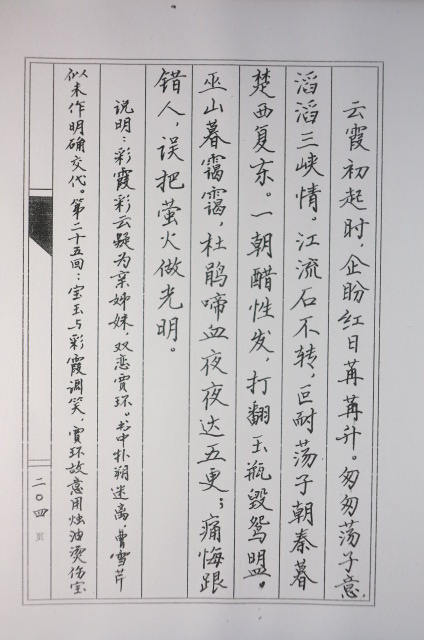 云霞初起时，企盼红日苒苒升。匆匆荡子意，
滔滔三峡情。江流石不转，叵耐荡子朝秦暮
楚西复东。一朝醋性发，打翻玉瓶毁鸳盟。
巫山暮霭霭，杜鹃啼血夜夜达五更；痛悔跟
错人，误把萤火做光明。
说明：彩霞彩云疑为亲姊妹，双恋贾环。书中扑朔迷离，曹雪芹
似未作明确交代。第二十五回：宝玉与彩霞调笑，贾环故意用烛油烫伤宝
二〇四 页